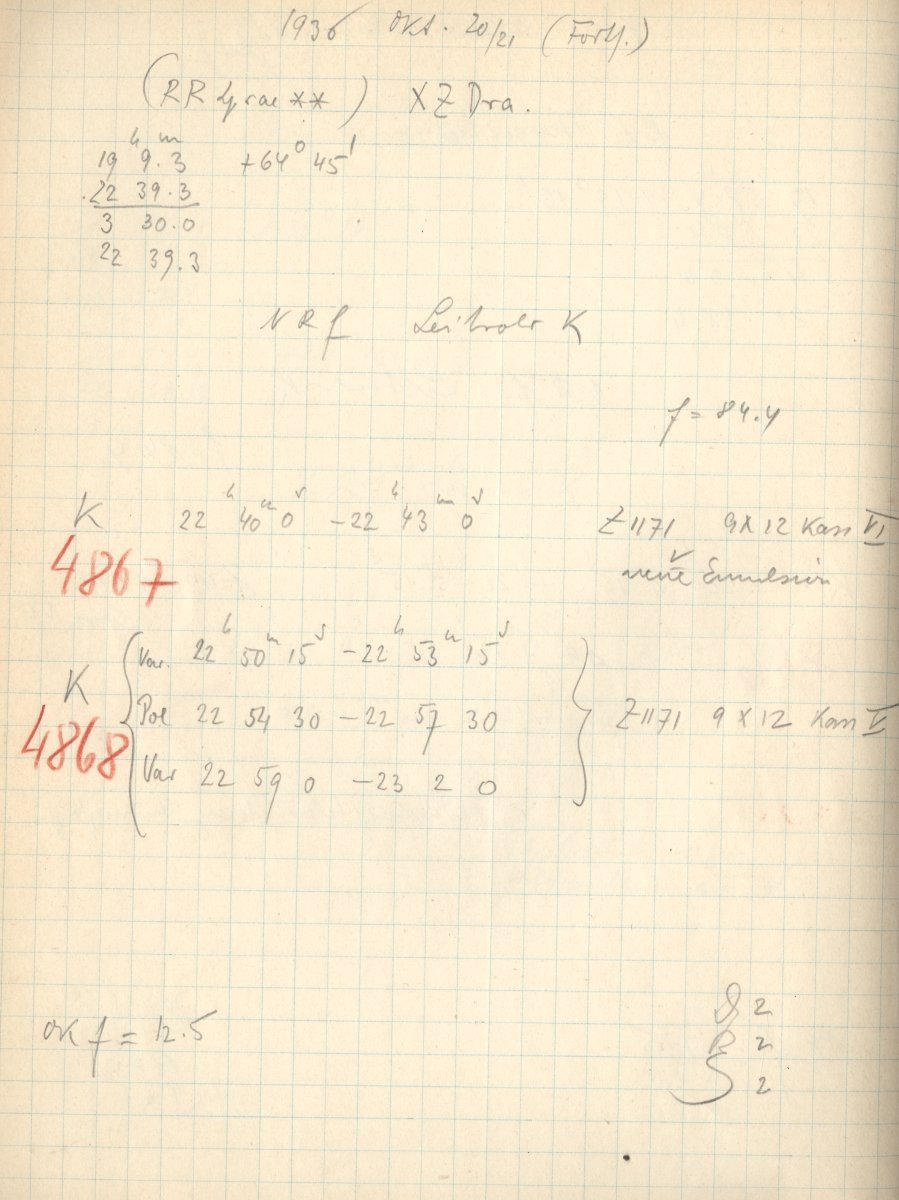 1936 Okt. 20/21 (Forts.)
(RR Lyrae **) XZ Dra.
19 h 9.3 m +64° 45'
22 39.3
3 30.0
22 39.3
NRf Leitrohr K
f = 84.4
K 22 h 40 m 0 s - 22 h 43 m 0 s Z1171 9x12 Kass VI
4867 neue Emulsion
Var. 22 h 50 m 15 s - 22 h 53 m 15 s
K Pol 22 54 30 - 22 57 30 Z1171 9x12 Kass V
4868 Var 22 59 0 - 23 2 0
OK f = 12.5
2
B 2
2